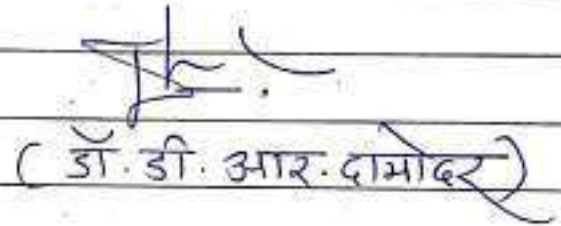 ( डॉ. डी. आर. दामोदर )